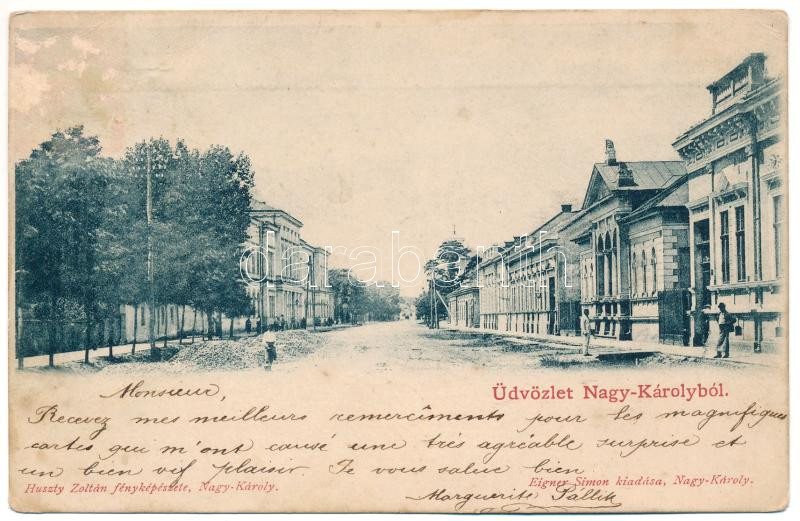 darabanth.com
Üdvözlet Nagy-Károlyból.
Monsieur,
Recevez mes meilleurs remercîments pour les magnifiques
cartes qui m'ont causé une très agréable surprise et
un bien vif plaisir. Je vous salue bien
Marguerite Pallik
Huszty Zoltán fényképészete, Nagy-Károly.
Eigner Simon kiadása, Nagy-Károly.